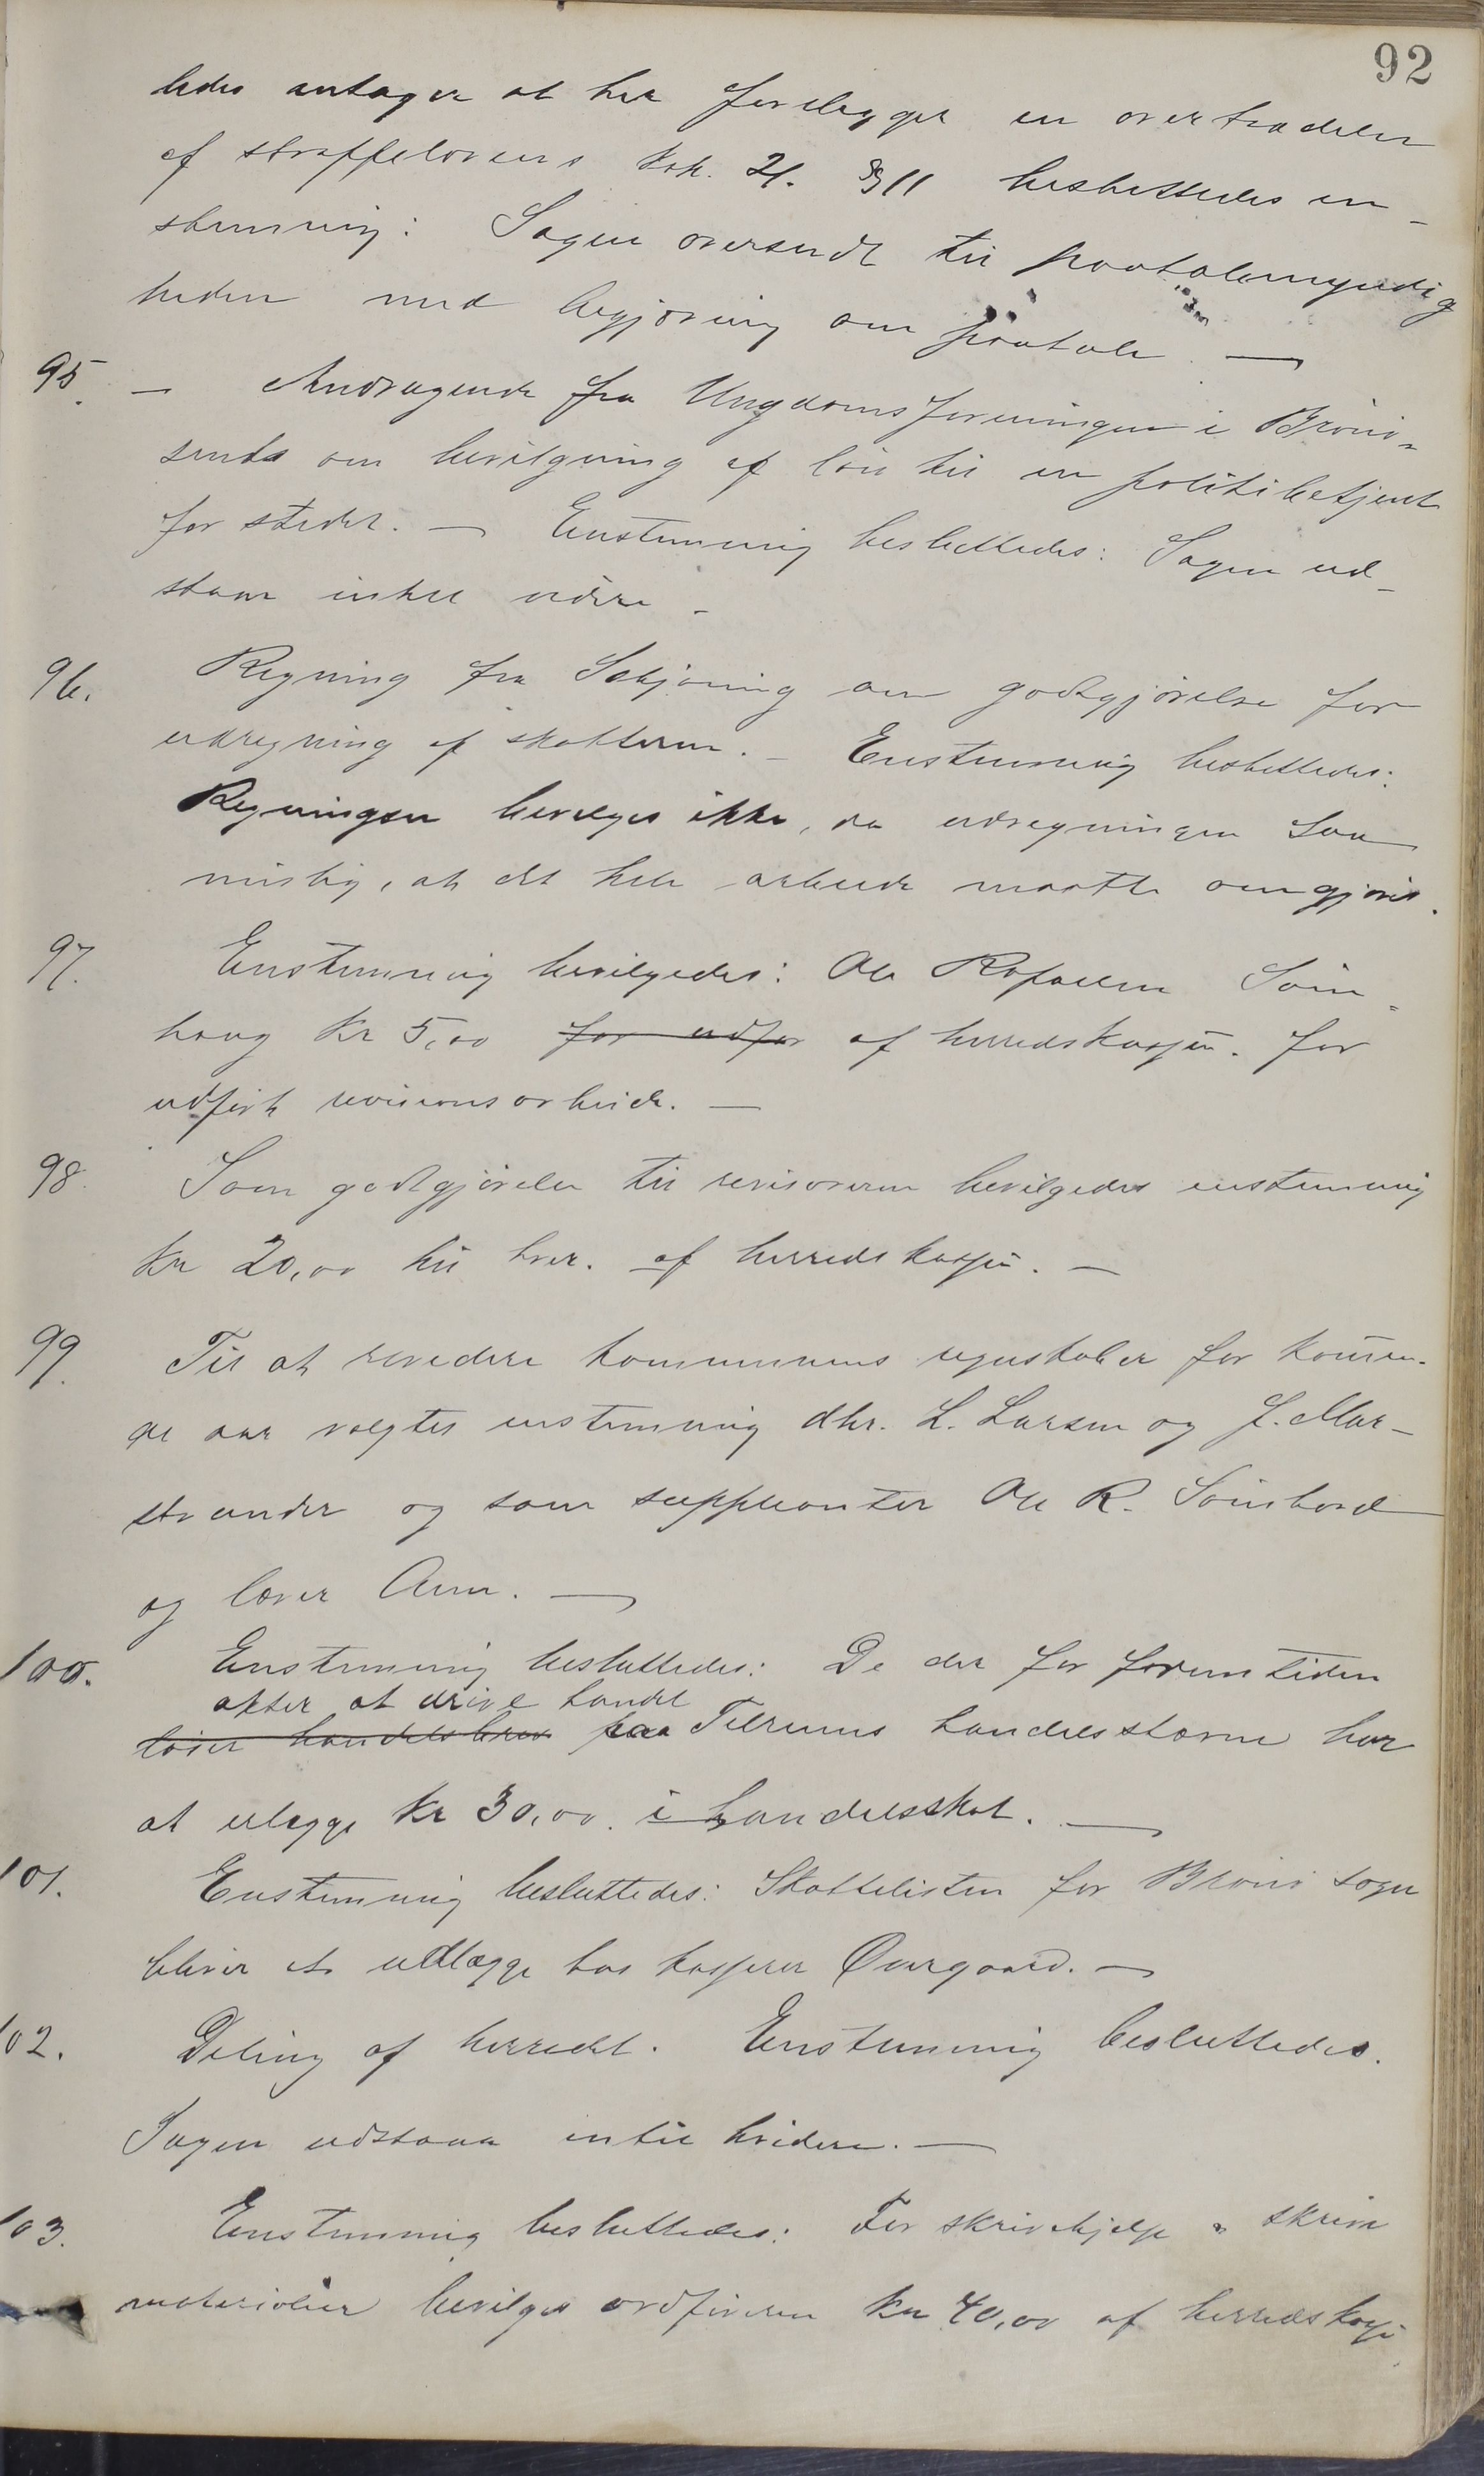 92
ledes antager at her foreligger en overtrædelse
af straffelovens kap. 21. § 11 besluttedes en-
stemmig: Sagen oversendt til paatalemyndig
heden med begjæring om paatale. —
95. — Andragende fra Ungdomsforeningen i Brønø-
sund om bevilgning af løn til en politibetjent
for stedet. — Enstemmig besluttedes: Sagen ud-
staar indtil videre. -
96. Regning fra om godtgjørelse for
udregning af skatterne. - Enstemmig besluttedes:
Regningen bevilges ikke, da udregningen saa
mislig, at det hele arbeide maatte omgjøres.
97. Enstemmig bevilgedes: Ole Rafaelsen Søm-
haug Kr 5,00 for udfør af herredskassen. for
udført revisionsarbeide. —
98. Som godtgjørelse til revisorerne bevilgedes enstemmig
Kr 20,00 til hver. af herredskassen. —
99. Til at revidere kommunens regnskaber for kommen-
de aar valgtes enstemmig dhr. L. Larsen og J. Mar-
strander og som suppleanter Ole R.
og lærer Aune. —
100. Enstemmig besluttedes: De der for fremtiden
agter at drive handel
løser handelsbrev paa Tilrems handelsstævne har
at erlægge Kr 30,00. i handelsskat. —
101. Enstemmig besluttedes: Skattelisten for Brønø sogn
bliver at udlægge hos kasserer Qvrgaard. —
102. Deling af herredet. Enstemmig besluttedes.
Sagen udstaar indtil videre. —
103. Enstemmig besluttedes: For skrivehjelp & skrive
materialier bevilges ordføreren Kr 40,00 af herredskassen